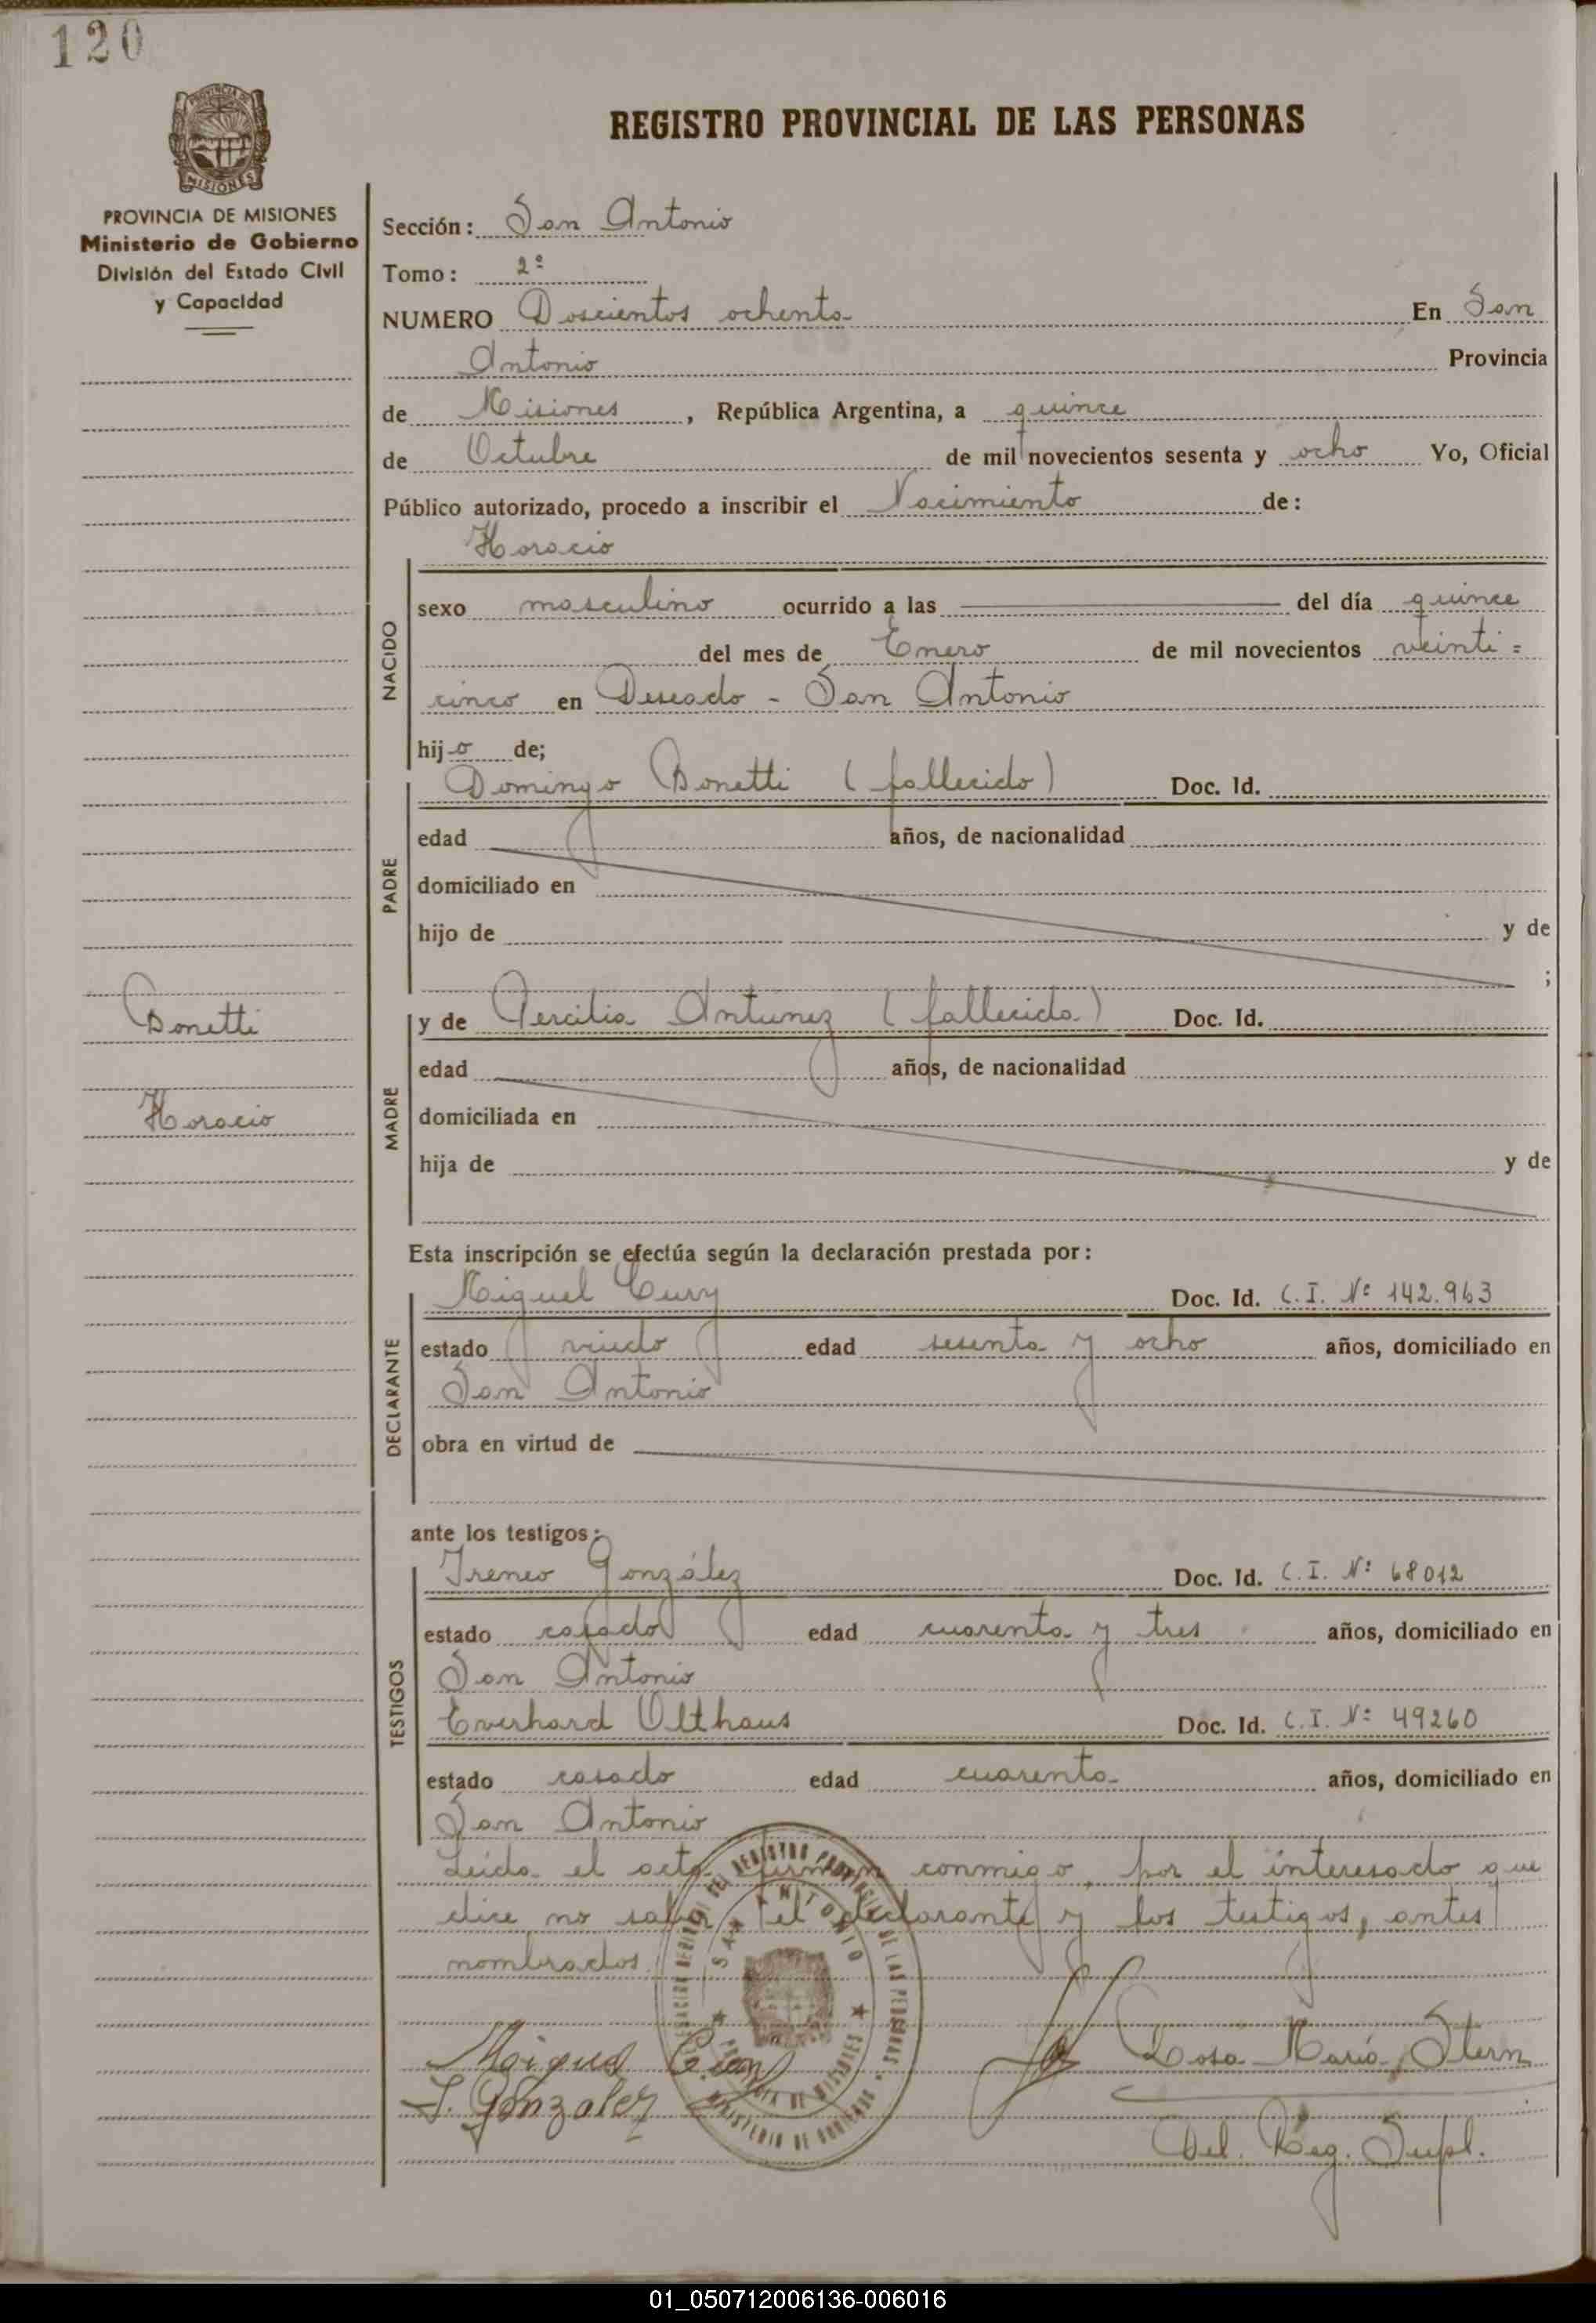 120
PROVINCIA DE MISIONES
MISIONES
PROVINCIA DE MISIONES
Ministerio de Gobierno
División del Estado Civil
y Capacidad
REGISTRO PROVINCIAL DE LAS PERSONAS
Sección: San Antonio
Tomo: 2º
NUMERO Doscientos ochenta En San
Antonio Provincia
de Misiones, República Argentina, a quince
de Octubre de mil novecientos sesenta y ocho Yo, Oficial
Público autorizado, procedo a inscribir el Nacimiento de:
Horacio
NACIDO
sexo masculino ocurrido a las del día quince
del mes de Enero de mil novecientos veinti=
cinco en Deseado - San Antonio
hijo de;
PADRE
Domingo Bonetti (fallecido) Doc. Id.
edad años, de nacionalidad
domiciliado en
hijo de y de
;
Bonetti
Horacio
MADRE
y de Percilia Antunez (fallecida) Doc. Id.
edad años, de nacionalidad
domiciliada en
hija de y de
Esta inscripción se efectúa según la declaración prestada por:
DECLARANTE
Miguel Cury Doc. Id. C.I. Nº 142.963
estado viudo edad sesenta y ocho años, domiciliado en
San Antonio
obra en virtud de
ante los testigos:
TESTIGOS
Ireneo González Doc. Id. C.I. Nº 68012
estado casado edad cuarenta y tres años, domiciliado en
San Antonio
Everhard Olthaus Doc. Id. C.I. Nº 49260
estado casado edad cuarenta años, domiciliado en
San Antonio
Leída el acta firman conmigo, por el interesado que
dice no saber, el declarante y los testigos, antes
nombrados.
SAN ANTONIO
PROVINCIA DE MISIONES
MINISTERIO DE GOBIERNO
Miguel Cury
I. Gonzalez
Rosa María Stern
Del. Reg. Supl.
01_050712006136-006016